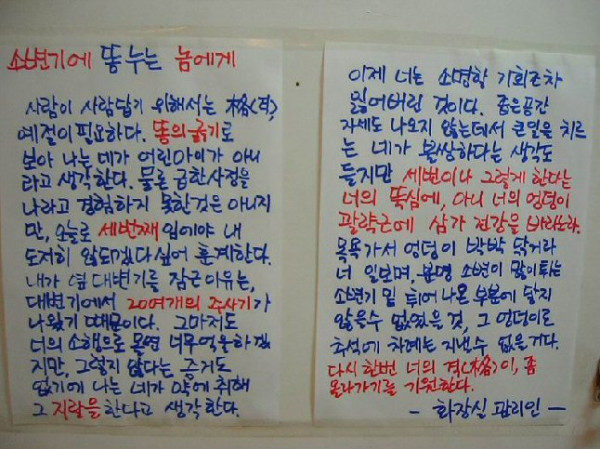 소변기에 똥 누는 놈에게
사람이 사람답기 위해서는 格(격),
예절이 필요하다. 똥의 굵기로
보아 나는 네가 어린아이가 아니
라고 생각한다. 물론 급한사정을
나라고 경험하지 못한것은 아니지
만, 오늘로 세번째 임이야 내
도저히 않되겠다 싶어 훈계한다.
내가 옆 대변기를 잠근 이유는,
대변기에서 20여개의 주사기가
나왔기 때문이다. 그마저도
너의 소행으로 몰면 너무 억울하겠
지만, 그렇지 않다는 증거도
없기에 나는 네가 약에 취해
그 지랄을 한다고 생각한다.
이제 너는 소명할 기회조차
잃어버린 것이다. 좁은공간
자세도 나오지 않는데서 큰일을 치르
는 네가 불쌍하다는 생각도
들지만 세번이나 그렇게 한다는
너의 뚝심에, 아니 너의 엉덩이
괄약근에 삼가 건강을 바라노라.
목욕가서 엉덩이 박박 닦거라
너 일보며, 분명 소변이 많이튀는
소변기 밑 튀어 나온 부분에 닿지
않을수 없었을 것, 그 엉덩이로
추석에 차례는 지낼수 없을 거다.
다시 한번 너의 격(格)이, 좀
올라가기를 기원한다.
- 화장실 관리인 -